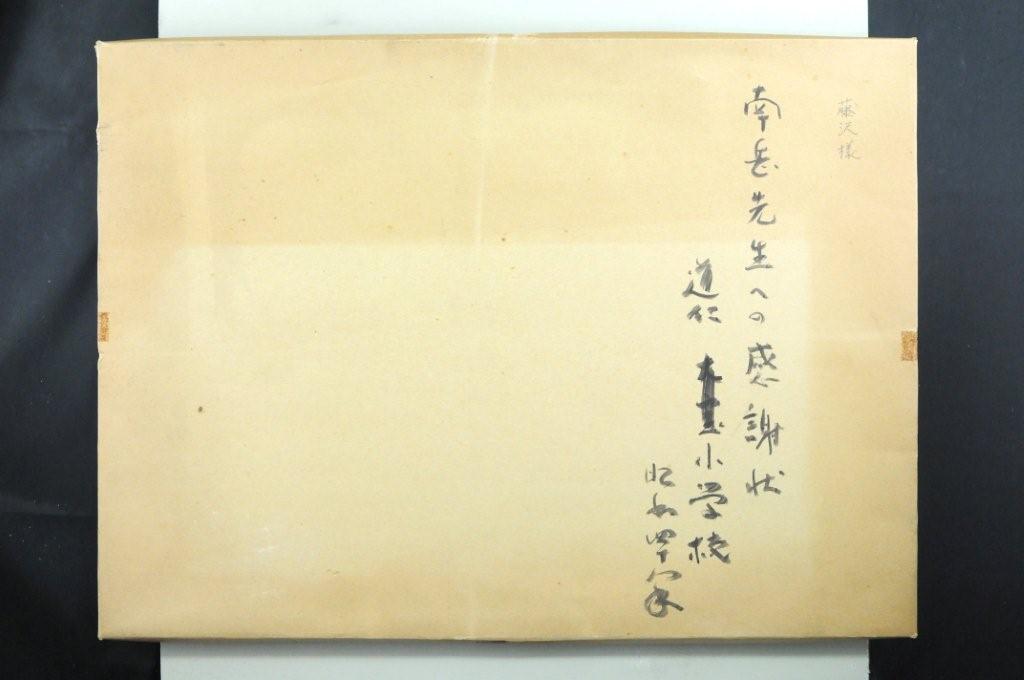 藤沢様
南岳先生への感謝状
道仁 小学校
昭和四十八年